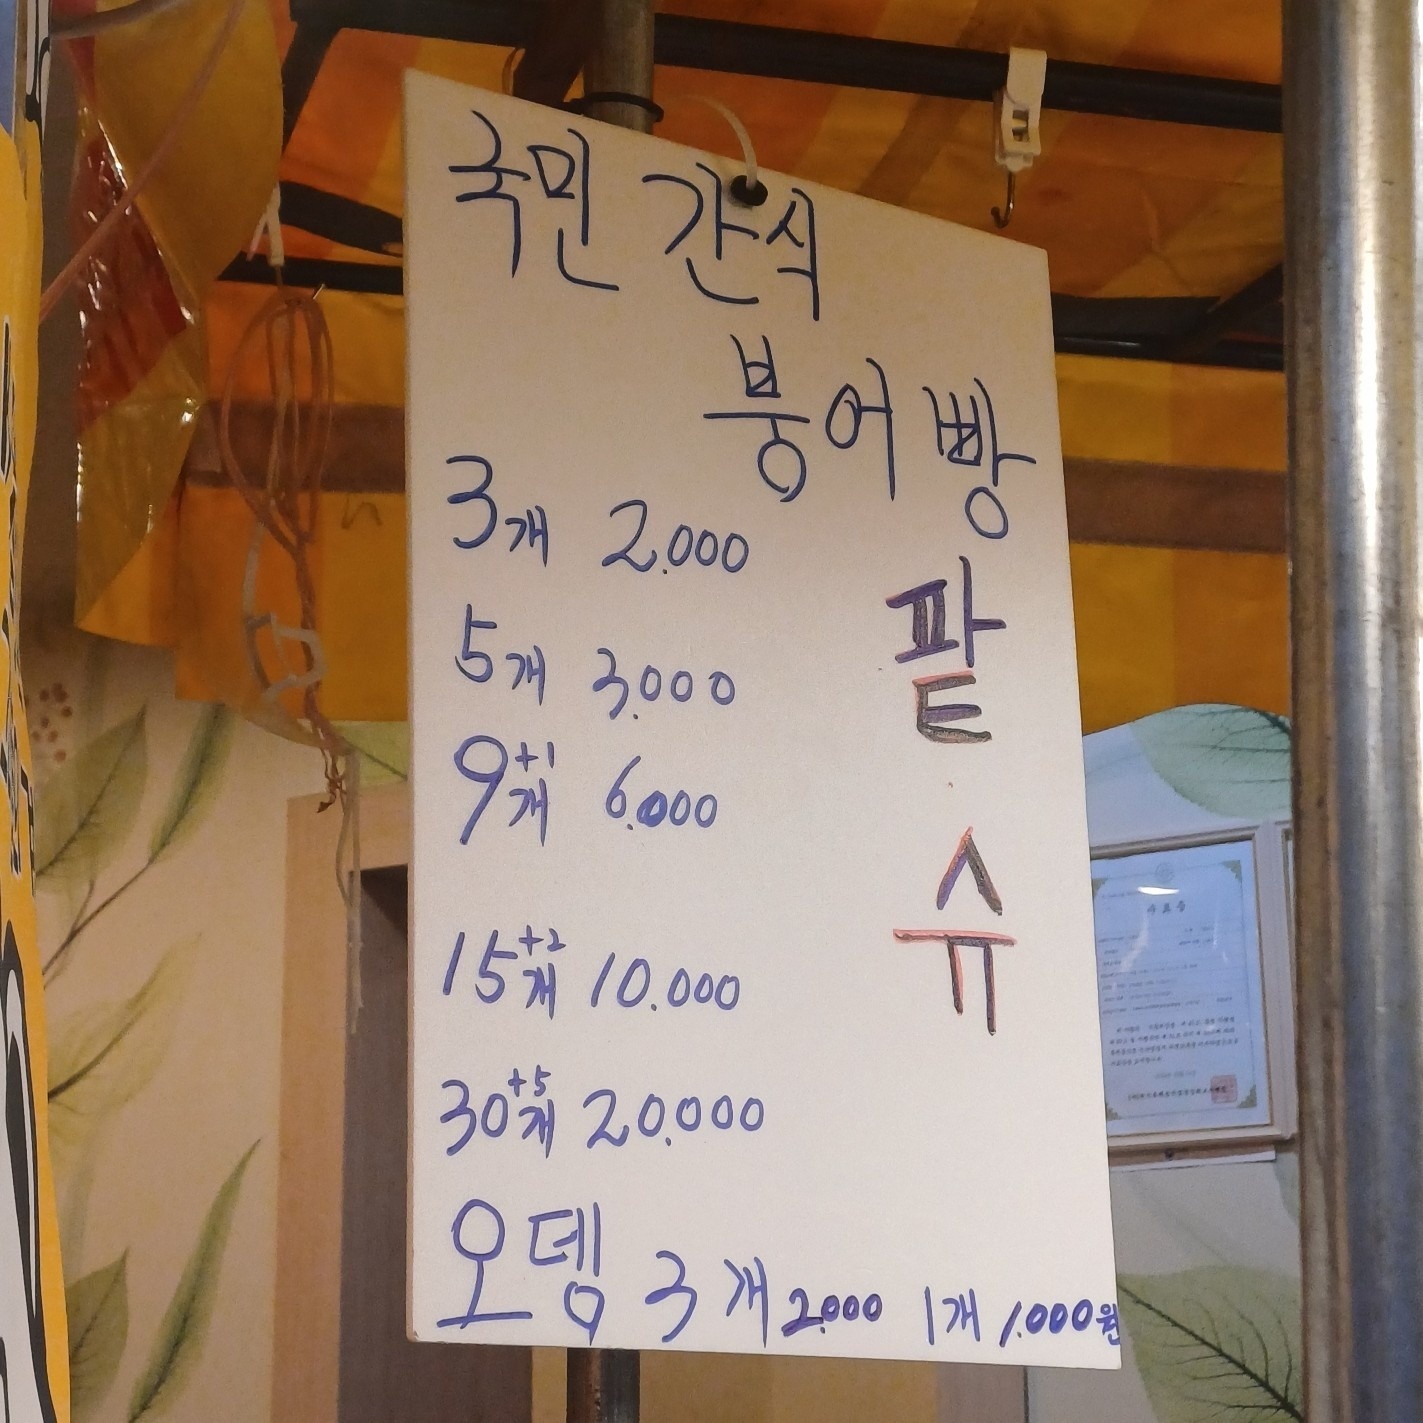 국민 간식
붕어빵
3개 2.000
5개 3.000
9+1개 6.000
15+2개 10.000
30+5개 20.000
팥
슈
오뎅 3개 2.000 1개 1.000원